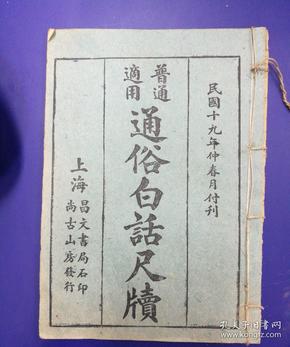 民國十九年仲春月付刊
普通
適用
通俗白話尺牘
上海
昌文書局石印
尚古山房發行
孔夫子旧书网